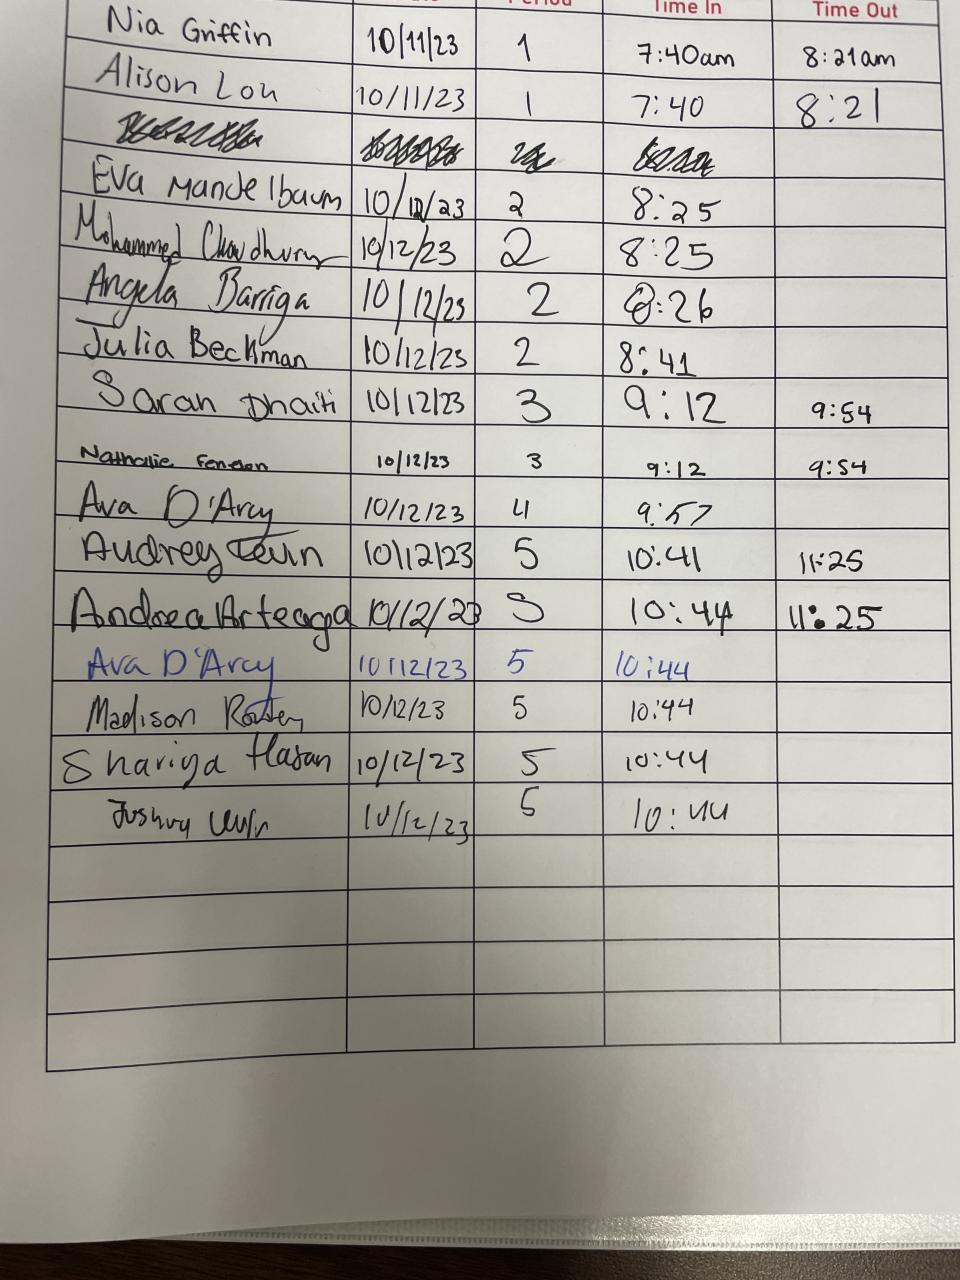 Period Time In Time Out
Nia Griffin 10/11/23 1 7:40am 8:21am
Alison Lou 10/11/23 1 7:40 8:21
Eva Mandelbaum 10/12/23 2 8:25
Mohammed Chowdhury 10/12/23 2 8:25
Angela Barriga 10/12/23 2 8:26
Julia Beckman 10/12/23 2 8:41
Sarah Dhaiti 10/12/23 3 9:12 9:54
Nathalie 10/12/23 3 9:12 9:54
Ava D'Arcy 10/12/23 4 9:57
Audrey Levin 10/12/23 5 10:41 11:25
Andrea Arteaga 10/12/23 5 10:44 11:25
Ava D'Arcy 10/12/23 5 10:44
Madison 10/12/23 5 10:44
Shariya Hasan 10/12/23 5 10:44
Joshua 10/12/23 5 10:44